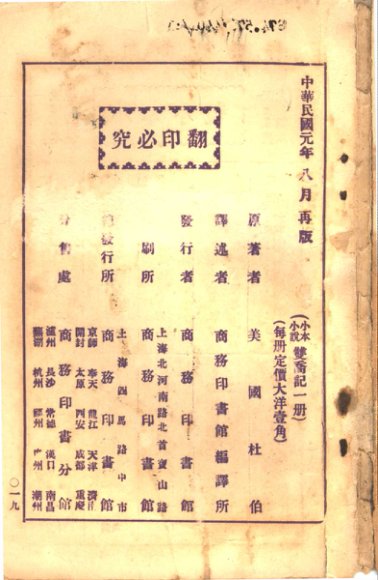 中華民國元年八月再版
(小本小說雙喬記一册)
(每册定價大洋壹角)
翻印必究
原著者 美國杜伯
譯述者 商務印書館編譯所
發行者 商務印書館
上海北河南路北首寶山路
刷所 商務印書館
上海四馬路中市
發行所 商務印書館
京師 奉天 龍江 天津 濟南
開封 太原 西安 成都 重慶
售處 商務印書分館
瀘州 長沙 常德 漢口 南昌
蕪湖 杭州 福州 州 潮州
〇一九